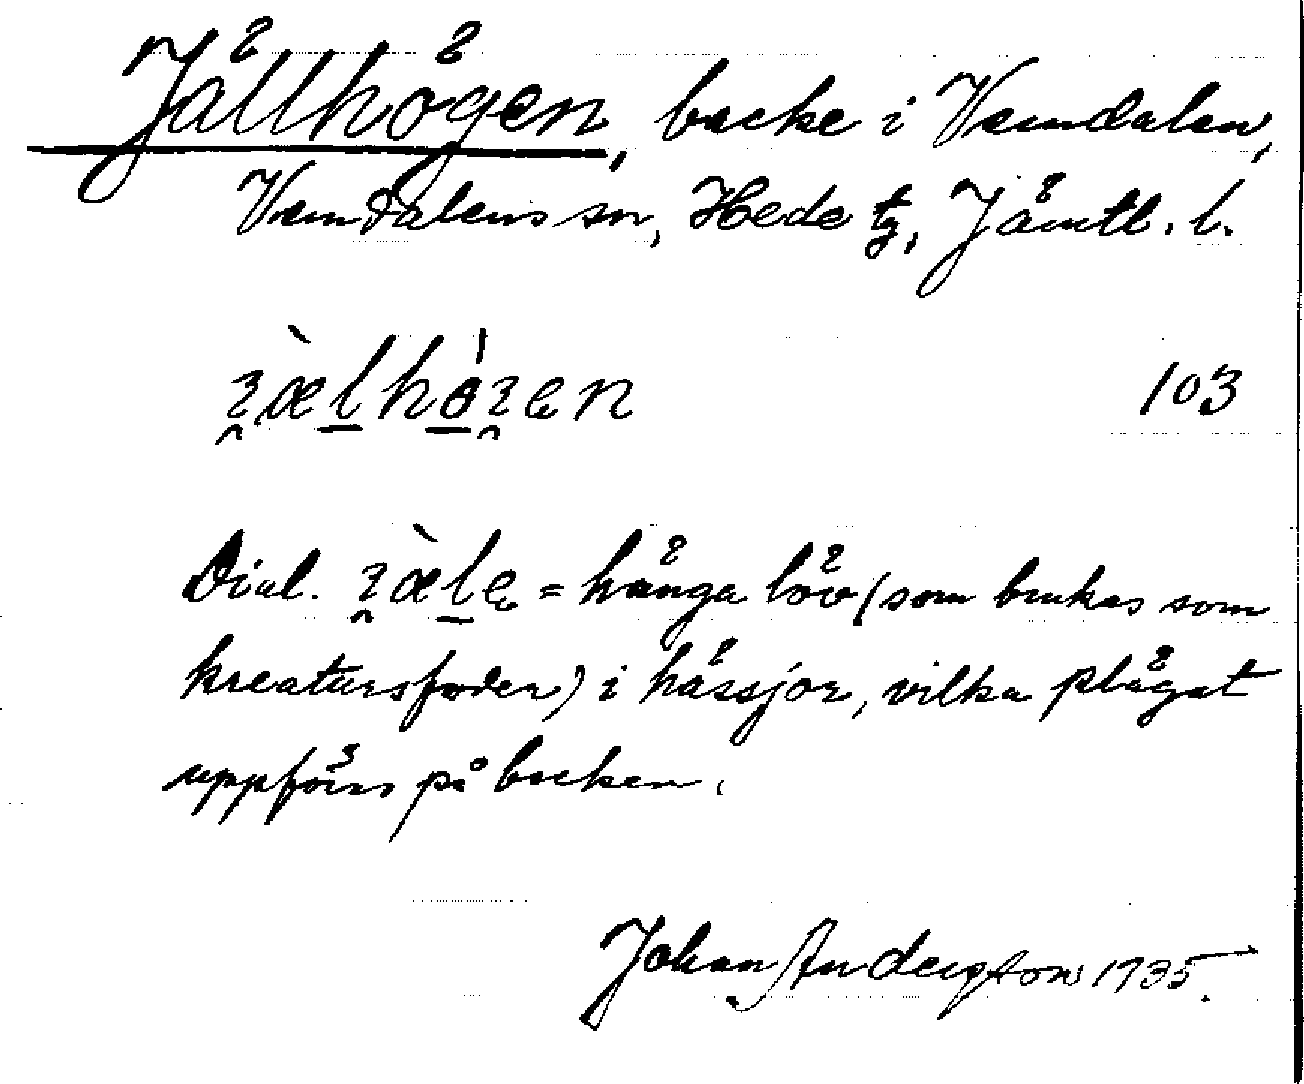 Jällhögen, backe i Vemdalen,
Vemdalens sn, Hede tg, Jämtl. l.
ʒ̯æ̀l̠hö̠́ʒ̯en
103
Dial. ʒ̯æ̀l̠e = hänga löv (som brukas som
kreatursfoder) i hässjor, vilka plägat
uppförs på backen.
Johan Andersson 1935.